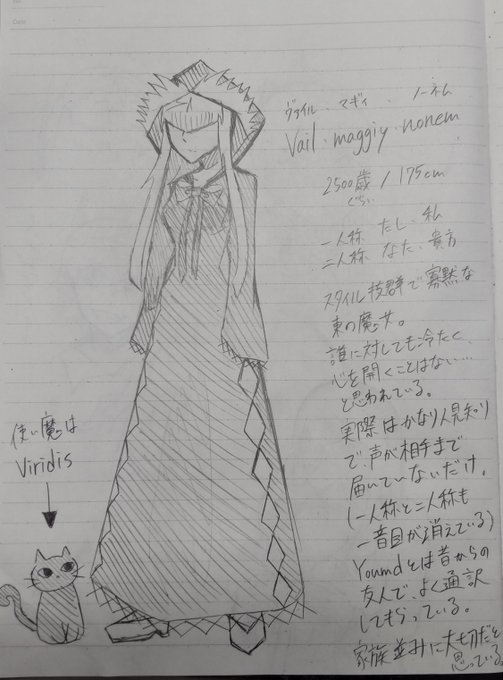 Date
ヴァイル・マギィ・ノーネム
Vail・maggiy・nonem
2500歳/175cm
ぐらい
一人称 たし、私
二人称 なた、貴方
スタイル抜群で寡黙な
東の魔女。
誰に対しても冷たく、
心を開くことはない…
と思われている。
実際はかなり人見知り
で、声が相手まで
届いていないだけ。
(一人称と二人称も
一音目が消えている)
Youmdとは昔からの
友人で、よく通訳
してもらっている。
家族並みに大切だと
思っている。
使い魔は
Viridis